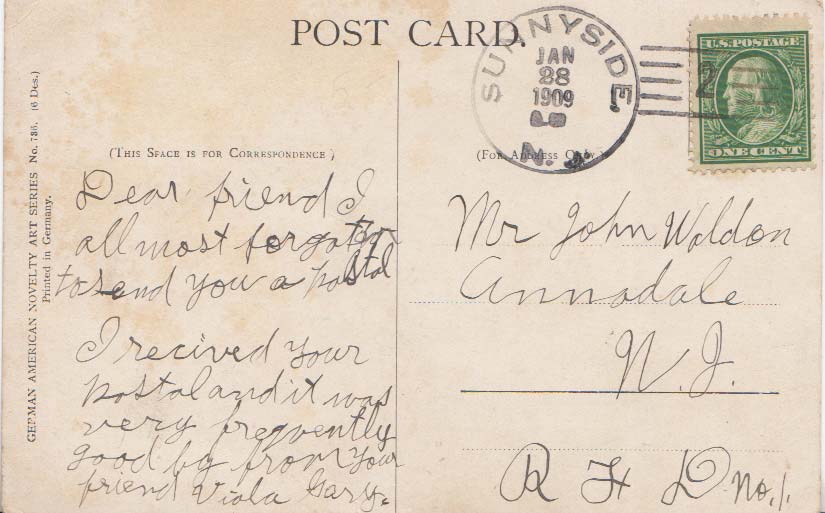 POST CARD.
SUNNYSIDE,
JAN
28
1909
N. J.
2
U.S. POSTAGE
ONE CENT
GERMAN AMERICAN NOVELTY ART SERIES No. 736. (6 Des.)
Printed in Germany.
(THIS SPACE IS FOR CORRESPONDENCE)
(FOR ADDRESS ONLY.)
Dear friend I
all most forgotten
to send you a postal
I recived your
postal and it was
very freqvently
good by from your
friend Viola Gary.
Mr John Waldon
Annadale
N. J.
R F D no. 1.